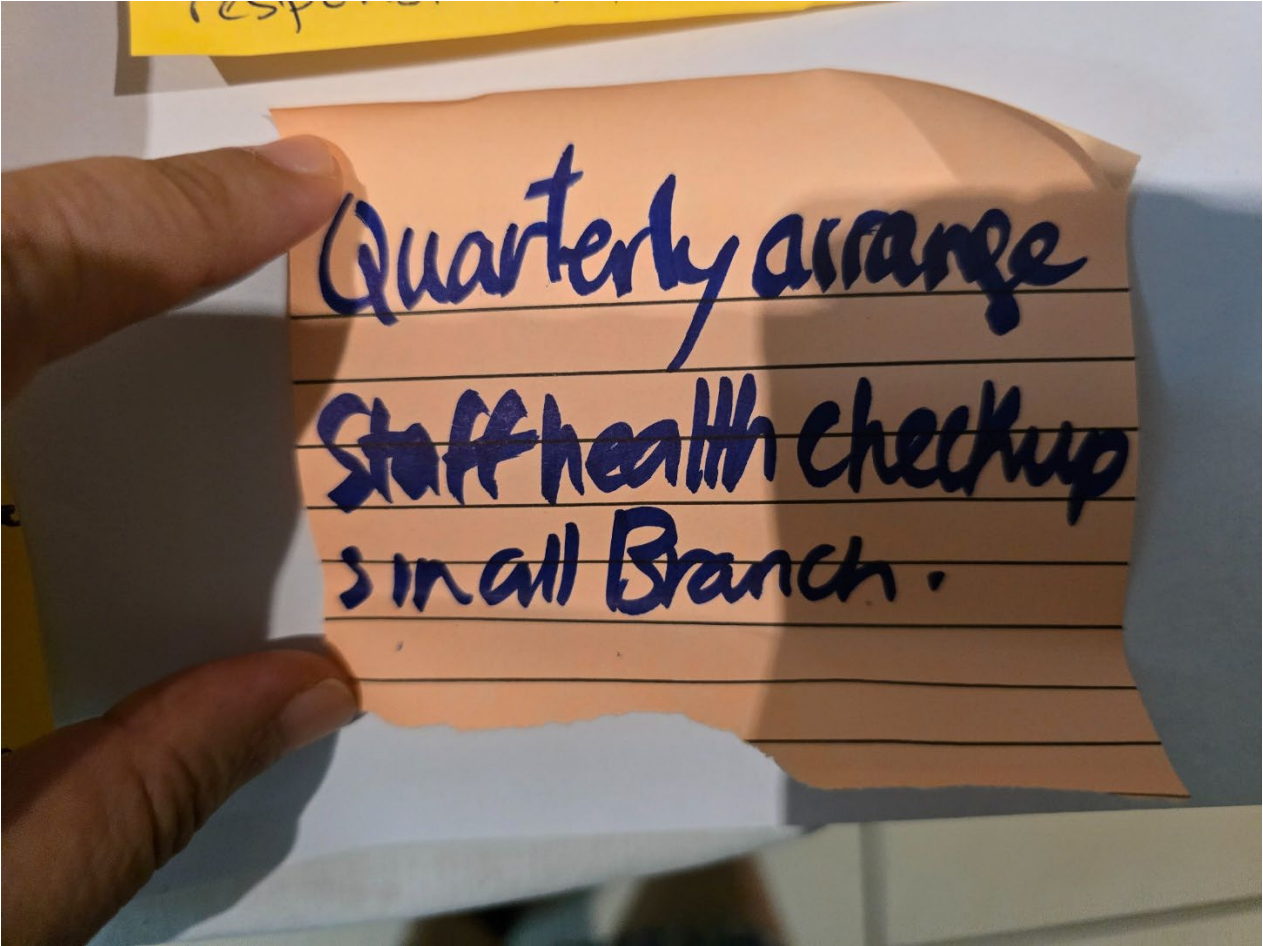 Quarterly arrange
Staff health checkup
s in all Branch.